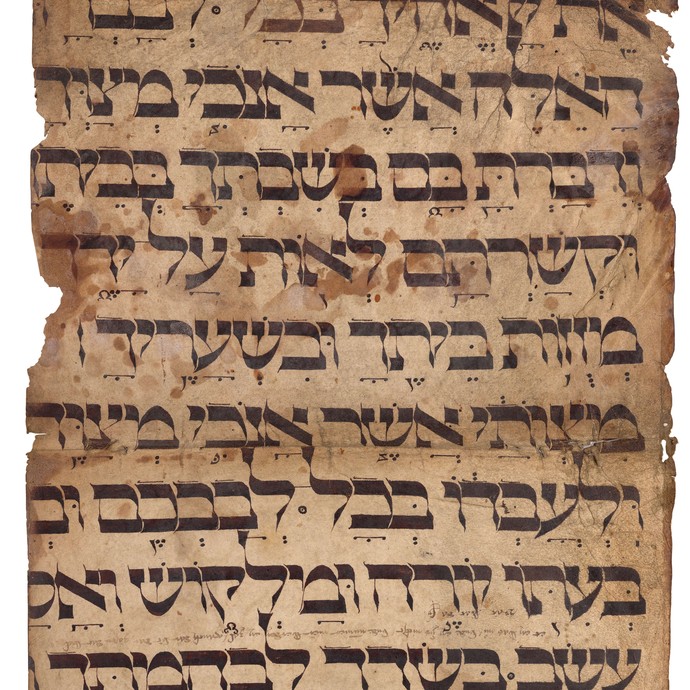 את בכל
האלה אשר אנכי מצוך
ודברת בם בשבתך בבית
וקשרתם לאות על יד
מזוזות ביתך ובשעריך
מצותי אשר אנכי מצוה
ולעבדו בכל לבבכם וב
בעתו יורה ומלקוש ואס
עשב בשדך לבהמתך